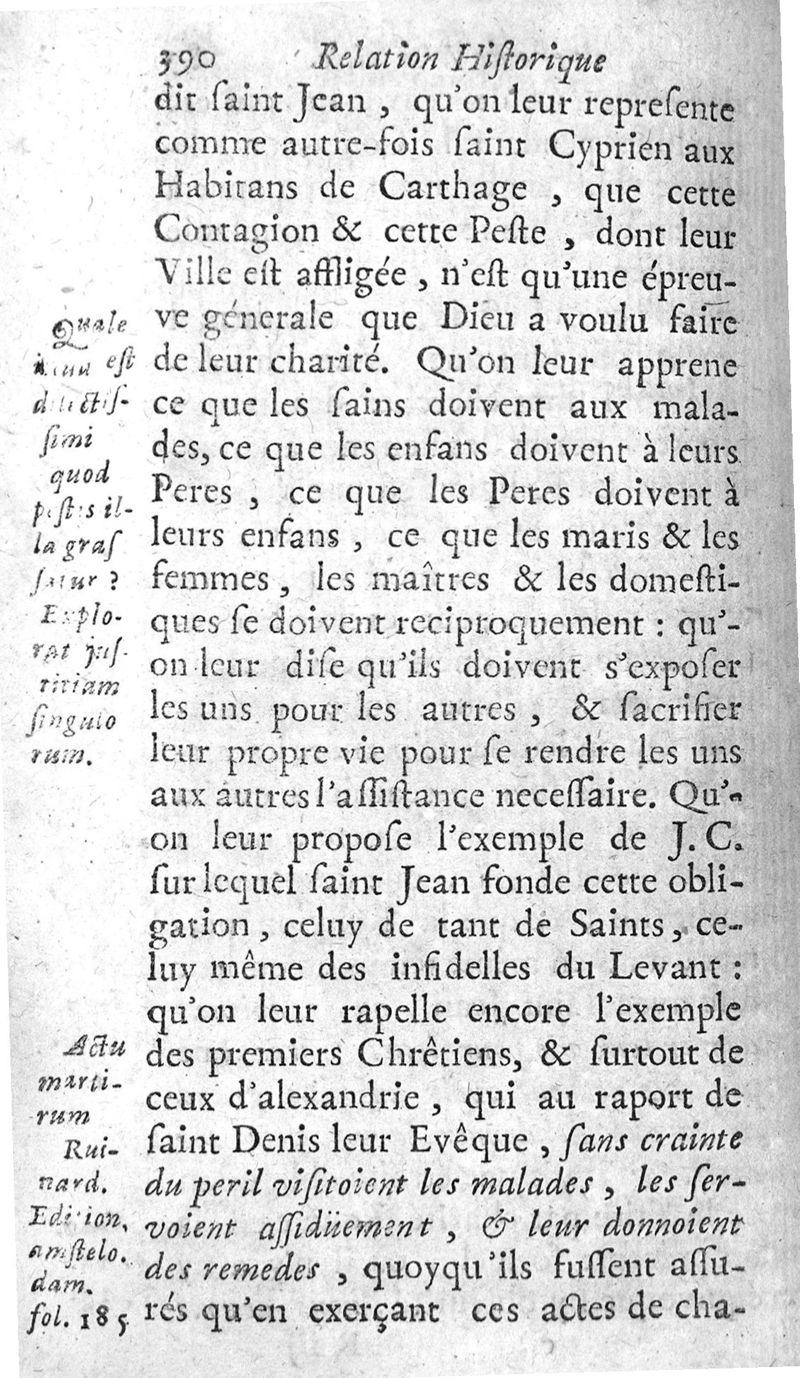 390 Relation Hiſtorique
dit ſaint Jean , qu'on leur repreſente
comme autre-fois ſaint Cyprien aux
Habitans de Carthage , que cette
Contagion & cette Peſte , dont leur
Ville eſt affligée , n'eſt qu'une épreu-
ve génerale que Dieu a voulu faire
de leur charité. Qu'on leur apprene
ce que les ſains doivent aux mala-
des, ce que les enfans doivent à leurs
Peres , ce que les Peres doivent à
leurs enfans , ce que les maris & les
femmes , les maîtres & les domeſti-
ques ſe doivent reciproquement : qu'-
on leur diſe qu'ils doivent s'expoſer
les uns pour les autres , & ſacrifier
leur propre vie pour ſe rendre les uns
aux autres l'aſſiſtance neceſſaire. Qu'-
on leur propoſe l'exemple de J. C.
ſur lequel ſaint Jean fonde cette obli-
gation , celuy de tant de Saints , ce-
luy même des infidelles du Levant :
qu'on leur rapelle encore l'exemple
des premiers Chrêtiens, & ſurtout de
ceux d'alexandrie , qui au raport de
ſaint Denis leur Evêque , ſans crainte
du peril viſitoient les malades , les ſer-
voient aſſidüement , & leur donnoient
des remedes , quoyqu'ils fuſſent aſſu-
rés qu'en exerçant ces actes de cha-
Quale
eſt
dilectiſ-
ſimi
quod
peſtis il-
la graſ
ſatur ?
Explo-
rat juſ-
titiam
ſingulo
rum.
Actu
marti-
rum
Rui-
nard.
Edition,
amſtelo.
dam.
fol. 185